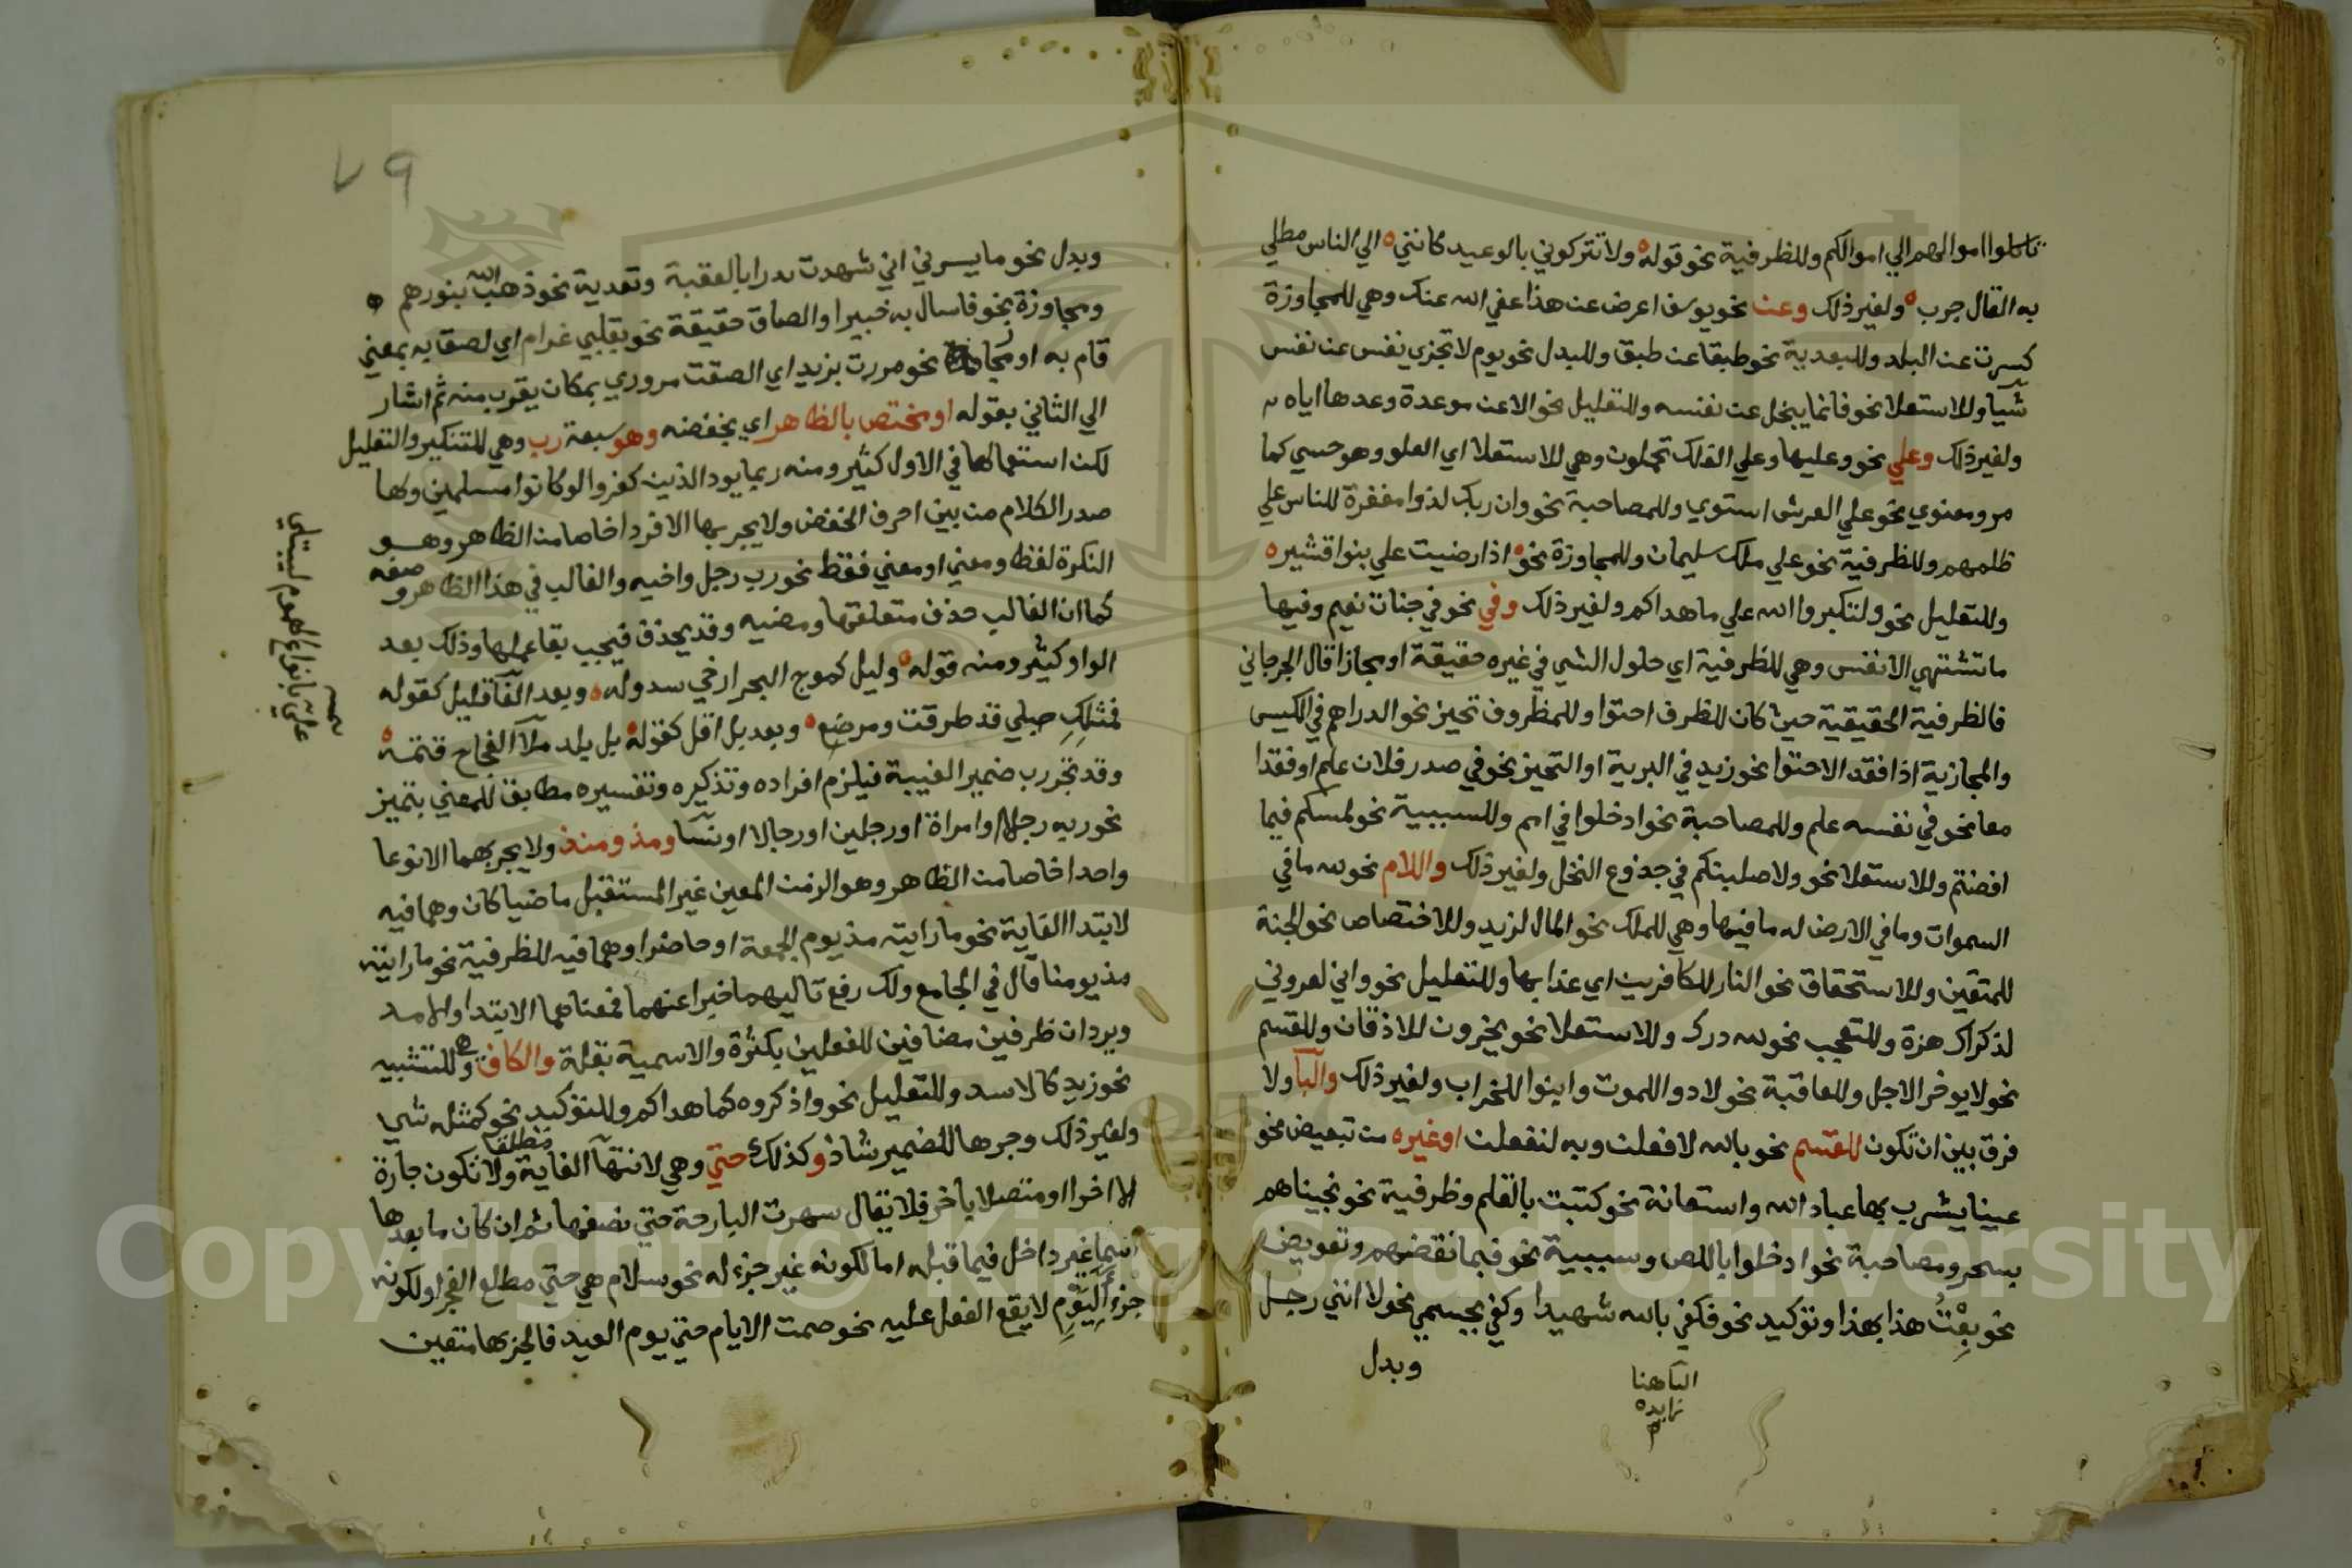 تاكلوا اموالهم الي اموالكم وللظرفية نحو قوله ولا تتركوني بالوعيد كانني الي الناس مطلي
به القال جرب ولغير ذلك وعن نحو يوسف اعرض عن هذا عفي الله عنك وهي للمجاوزة
كسرت عن البلد وللبعدية نحو طبقا عن طبق وللبدل نحو يوم لا تجزي نفس عن نفس
شيا وللاستعلا نحو فانما يبخل عن نفسه وللتعليل نحو الا عن موعدة وعدها اياه
ولغير ذلك وعلي نحو وعليها وعلي الفلك تحملون وهي للاستعلا اي العلو وهو حسي كما
مر ومعنوي نحو علي العرش استوي وللمصاحبة نحو وان ربك لذوا مغفرة للناس علي
ظلمهم وللظرفية نحو علي ملك سليمان وللمجاوزة نحو اذا رضيت علي بنوا قشير
وللتعليل نحو ولتكبروا الله علي ما هداكم ولغير ذلك وفي نحو في جنات نعيم وفيها
ما تشتهي الانفس وهي للظرفية اي حلول الشي في غيره حقيقة او مجازا قال الجرجاني
فالظرفية الحقيقية حيث كان للظرف احتوا وللمظروف تحيز نحو الدراهم في الكيس
والمجازية اذا فقد الاحتوا نحو زيد في البرية او التحيز نحو في صدر فلان علم او فقدا
معا نحو في نفسه علم وللمصاحبة نحو ادخلوا في امم وللسببية نحو لمسكم فيما
افضتم وللاستعلا نحو ولاصلبنكم في جذوع النخل ولغير ذلك واللام نحو لله ما في
السموات وما في الارض له ما فيها وهي للملك نحو المال لزيد وللاختصاص نحو الجنة
للمتقين وللاستحقاق نحو النار للكافرين اي عذابها وللتعليل نحو واني لعروني
لذكراك هزة وللتعجب نحو لله درك وللاستعلا نحو يخرون للاذقان وللقسم
نحو لا يوخر الاجل وللعاقبة نحو لادوا للموت وابنوا للخراب ولغير ذلك والبا ولا
فرق بين ان تكون للقسم نحو بالله لافعلن وبه لنفعلن او غيره من تبعيض نحو
عينا يشرب بها عباد الله واستعانة نحو كتبت بالقلم وظرفية نحو نجيناهم
بسحر ومصاحبة نحو ادخلوا باللص وسببية نحو فبما نقضهم وتعويض
نحو بعت هذا بهذا وتوكيد نحو فكفي بالله شهيدا وكفي بجسمي نحولا انني رجل
وبدل
البا هنا
زايده
٧٩
وبدل نحو ما يسرني اني شهدت بدرا بالعقبة وتعدية نحو ذهب الله بنورهم
ومجاوزة نحو فاسال به خبيرا والصاق حقيقة نحو بقلبي غرام اي لصقا به بمعني
قام به او مجاز نحو مررت بزيد اي الصقت مروري بمكان يقرب منه ثم اشار
الي الثاني بقوله او يختص بالظاهر اي بخفضه وهو سبعة رب وهي للتكثير والتقليل
لكن استعمالها في الاول كثير ومنه ربما يود الذين كفروا لو كانوا مسلمين ولها
صدر الكلام من بين احرف الخفض ولا يجر بها الا فردا خاصا من الظاهر وهو
النكرة لفظا ومعني او معني فقط نحو رب رجل واخيه والغالب في هذا الظاهر وصفه
كما ان الغالب حذف متعلقها ومضيه وقد يحذف فيجب بقا عملها وذلك بعد
الواو كثير ومنه قوله وليل كموج البحر ارخي سدوله وبعد الفا قليل كقوله
فمثلك حبلي قد طرقت ومرضع وبعد بل اقل كقوله بل بلد ملآ الفجاج قتمه
وقد تجر رب ضمير الغيبة فيلزم افراده وتذكيره وتفسيره مطابق للمعني بتميز
نحو ربه رجلا وامراة او رجلين او رجالا او نسا ومذ ومنذ ولا يجر بهما الا نوعا
واحدا خاصا من الظاهر وهو الزمن المعين غير المستقبل ماضيا كان وهما فيه
لابتدا الغاية نحو ما رايته مذ يوم الجمعة او حاضرا وهما فيه للظرفية نحو ما رايته
مذ يومنا قال في الجامع ولك رفع تاليهما خبرا عنهما فمعناهما الابتدا والامد
ويردان ظرفين مضافين للفعلين بكثرة والاسمية بقلة والكاف وهي للتشبيه
نحو زيد كالاسد وللتعليل نحو واذكروه كما هداكم وللتوكيد نحو كمثله شي
ولغير ذلك وجرها للضمير شاذ وكذلك حتي وهي لانتهآ الغاية مطلقا ولا تكون جارة
الا اخرا او متصلا باخر فلا يقال سهرت البارحة حتي نصفها ثم ان كان ما بعدها
اسما غير داخل فيما قبله اما لكونه غير جزء له نحو سلام هي حتي مطلع الفجر او لكونه
جزء لم يقع الفعل عليه نحو صمت الايام حتي يوم العيد فالجر بها متعين
علي بانواع الهموم ليبتلي
Copyright © King Saud University